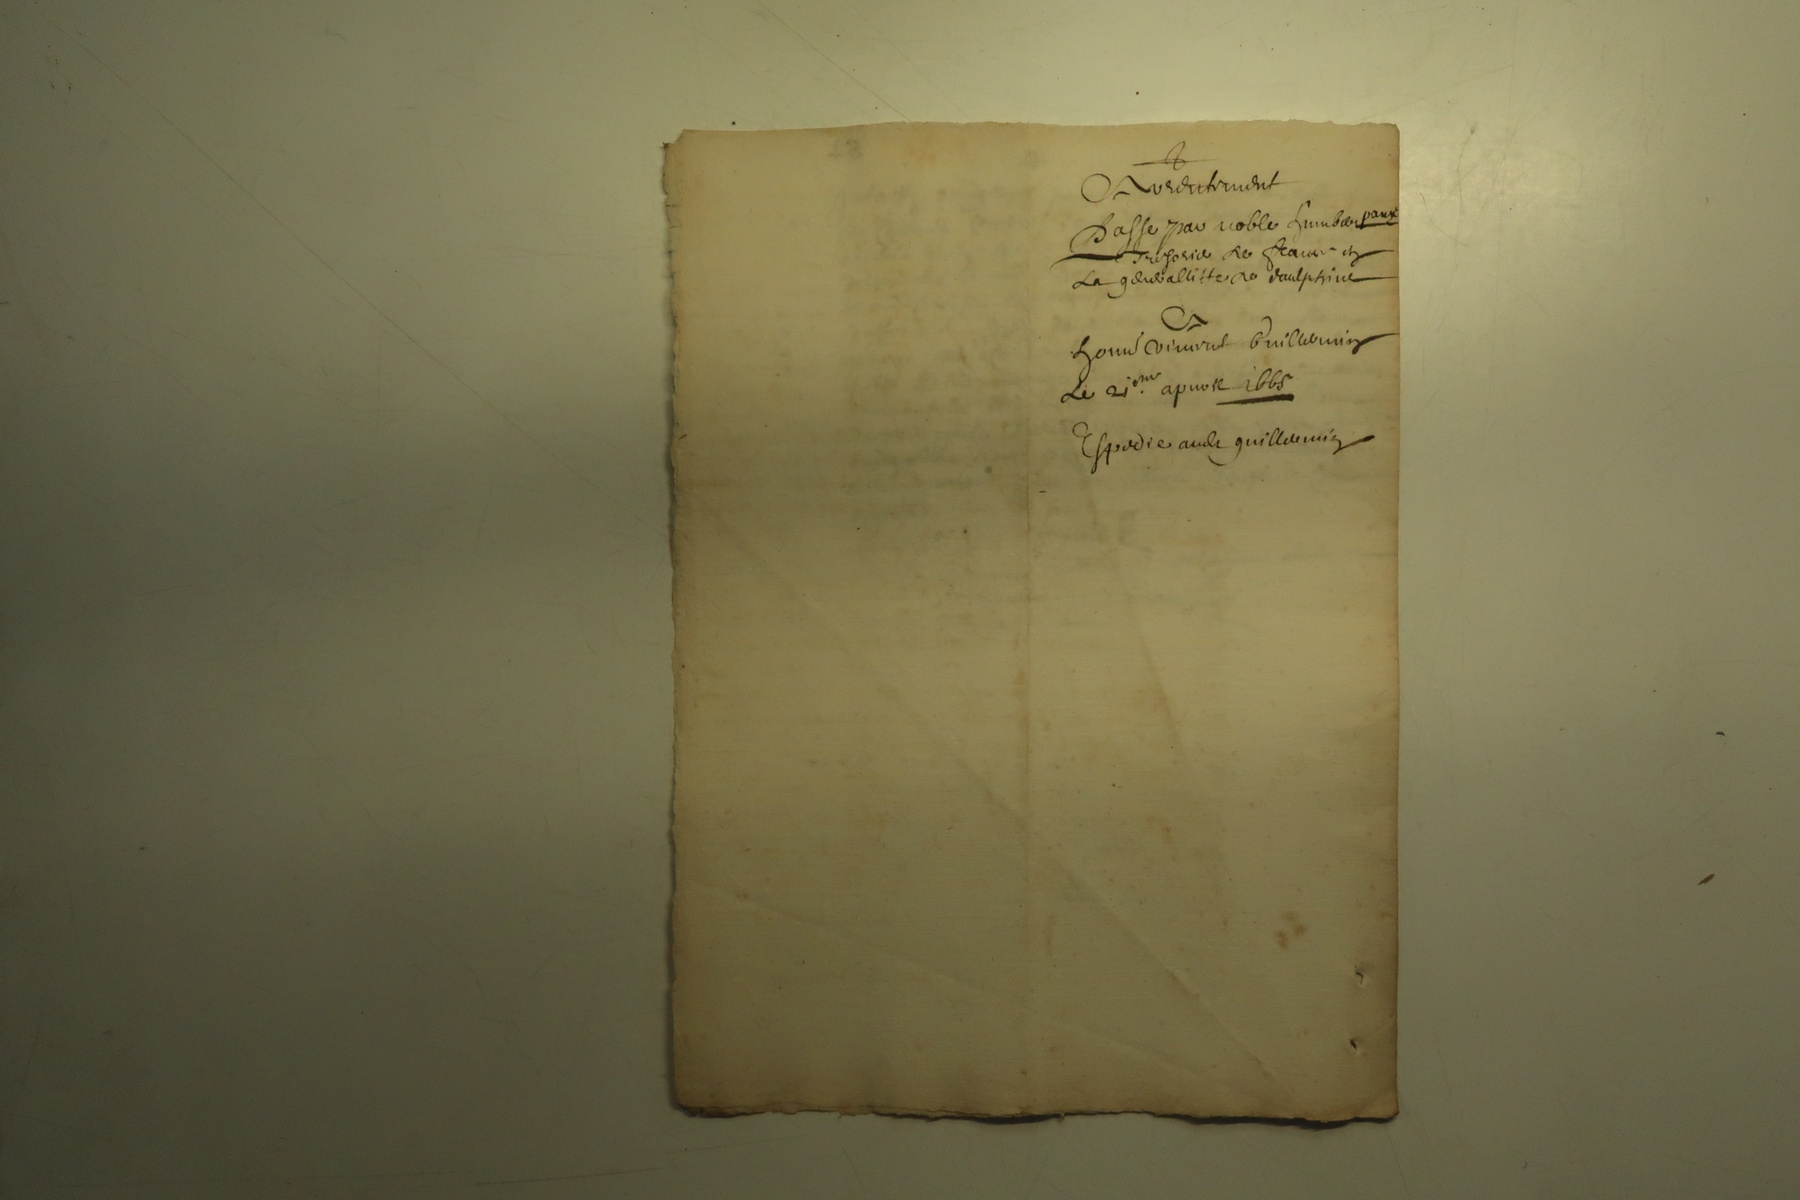 Arrentement
Passe par noble humbert
Tresorier de france en
La generallitte de daulphine
A
honnê vincent Guillermin
Le 21eme apvril 1665
Espedie audt guillermin